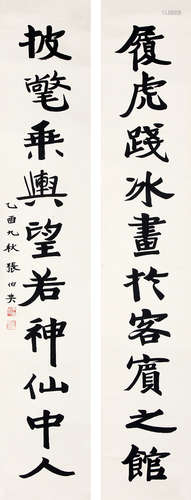 履虎踐冰畫於客賓之館
披氅乘輿望若神仙中人
乙酉九秋張伯英